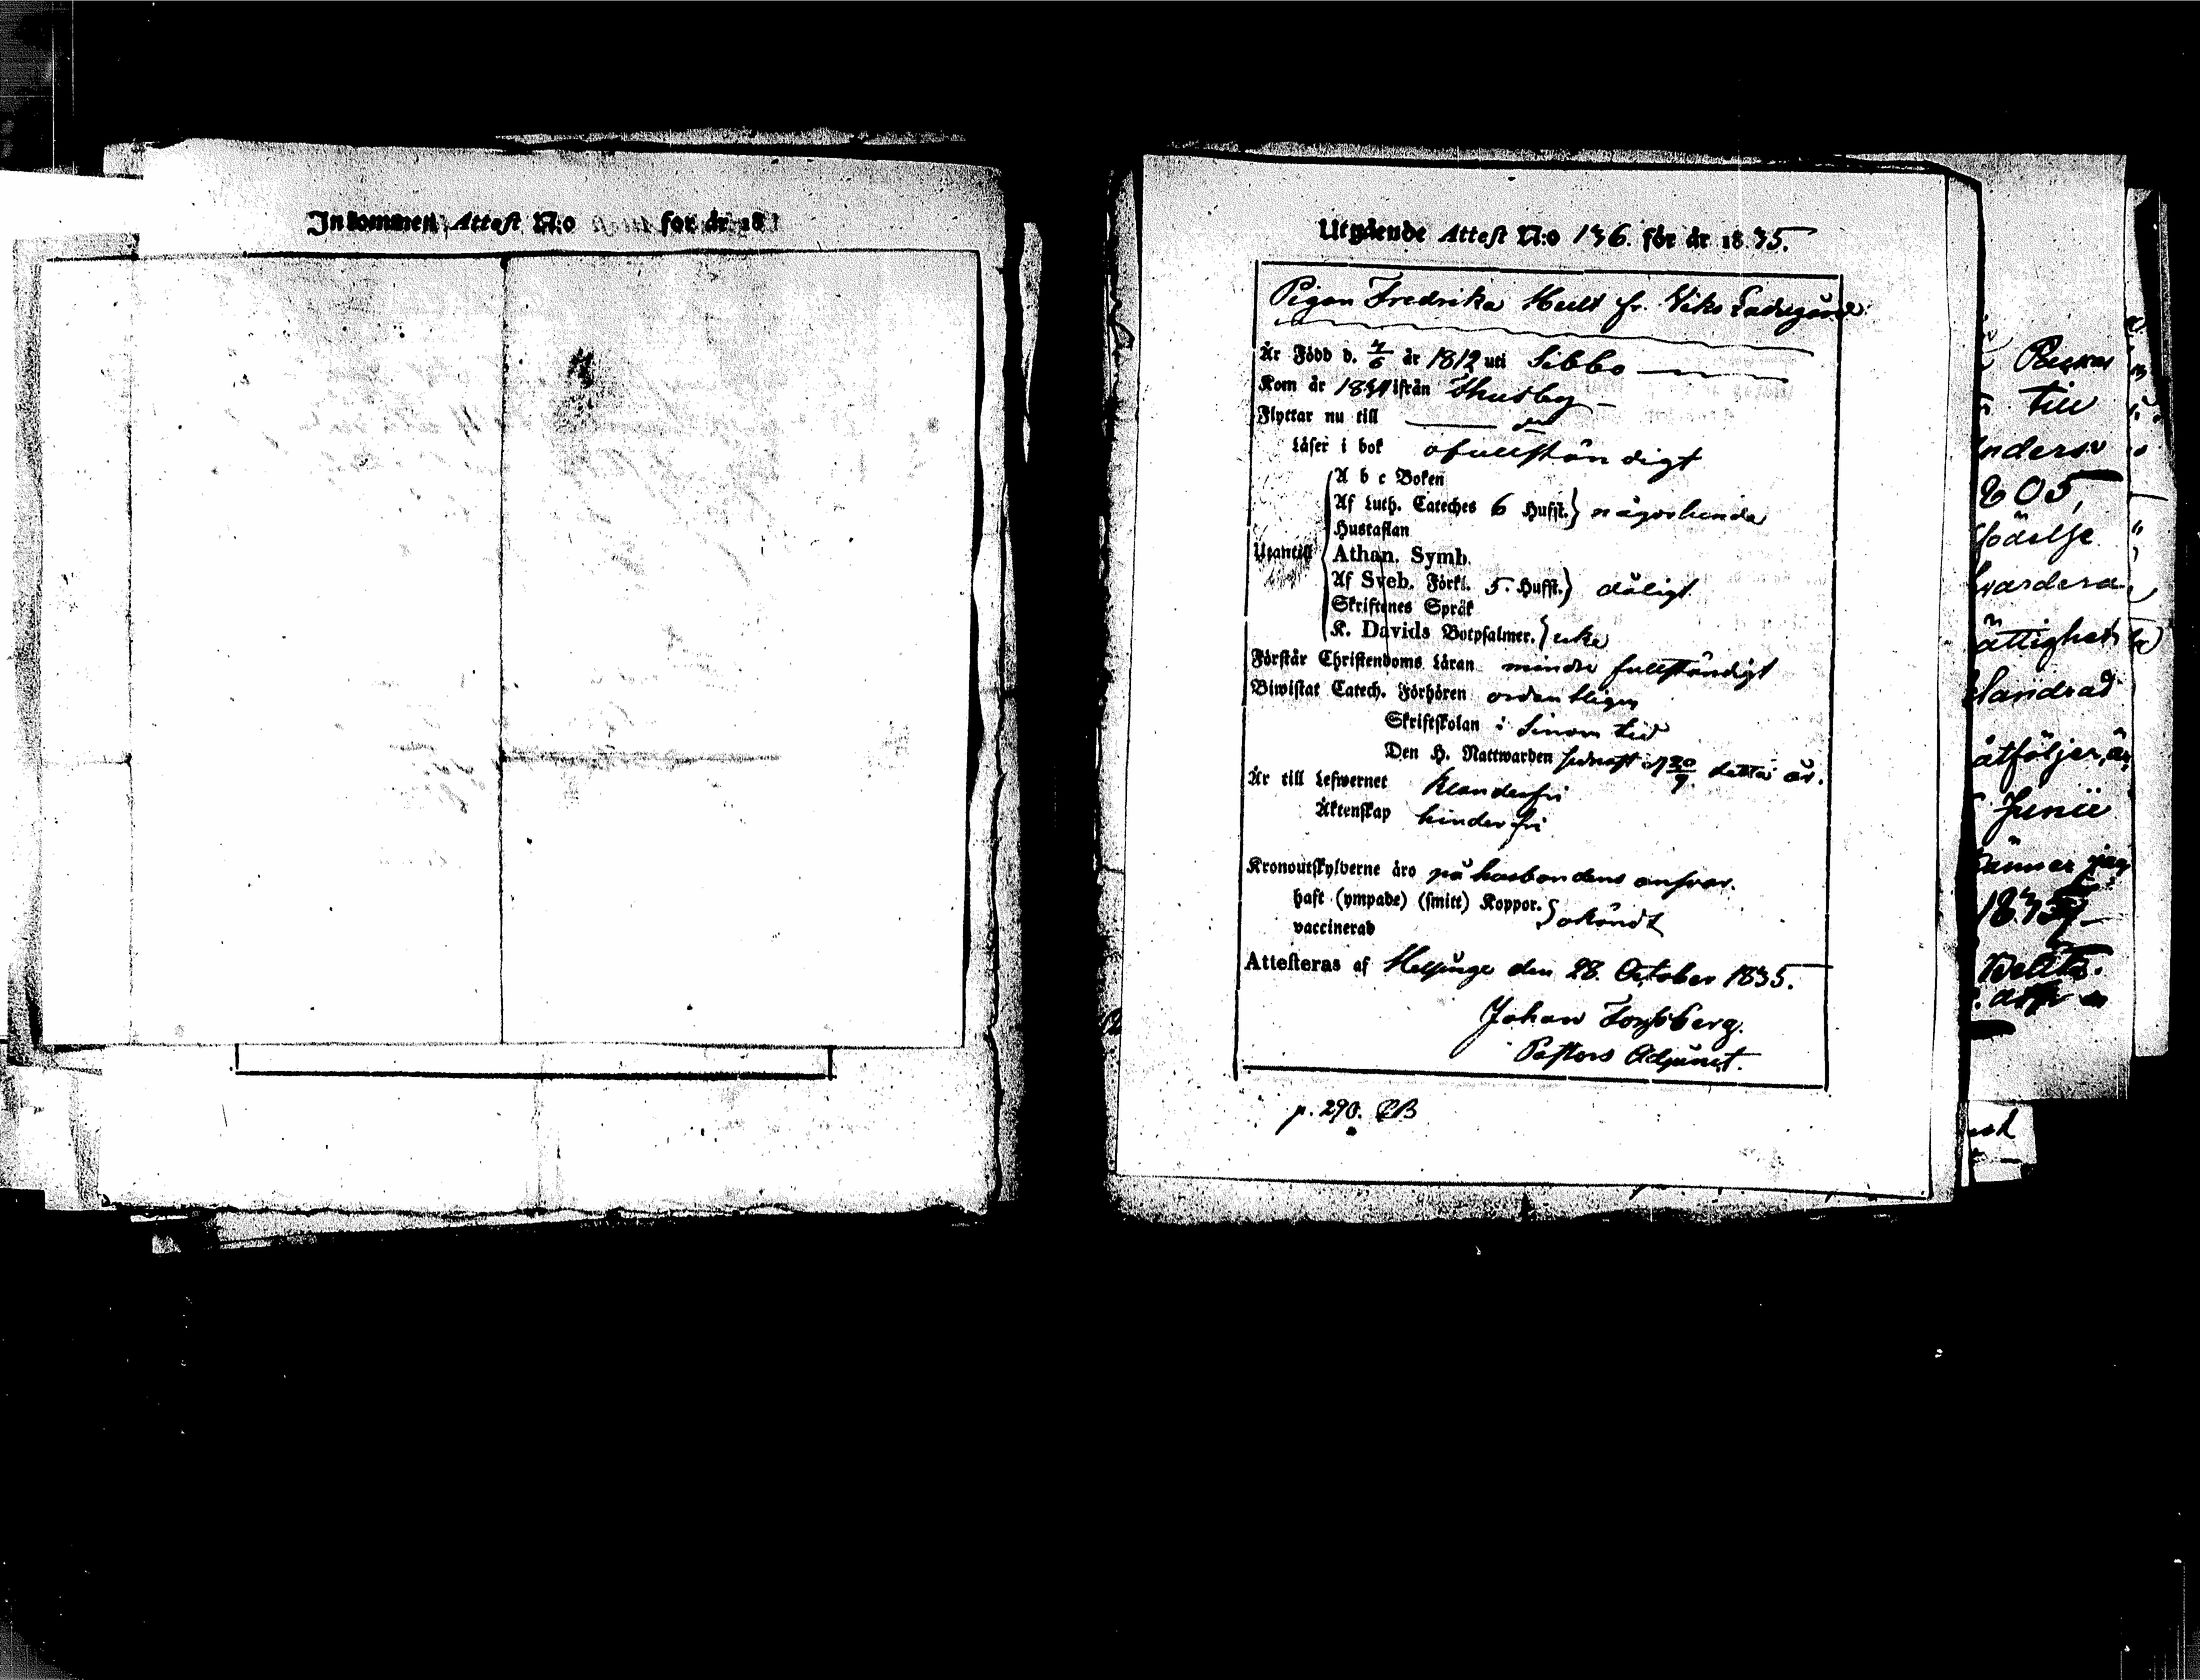 Inkommen Attest N:o för år 18
Utgående Attest N:o 136. för år 1835.
Pigan Fredrika Hult fr. Viks Ladugård
Är Född d. 7/6 år 1812 uti Sibbo
Kom år 1834 ifrån Thusby
Flyttar nu till do
Läser i bok ofullständigt
A b c Boken
Af Luth. Cateches 6 Hufst. } någorlunda
Hustaflan
Utantill Athan. Symb.
Af Sveb. Förkl. 5. Hufst. } dåligt
Skriftenes Språk
K. Davids Botpsalmer. } icke
Förstår Christendoms Läran mindre fullständigt
Biwistat Catech. Förhören ordentligen
Skriftskolan i sinom tid
Den H. Nattwarden sednast d 20/9 detta år.
Är till Lefwernet klanderfri
Äktenskap hinderfri
Kronoutskylderne äro på husbondens ansvar.
haft (ympade) (smitt) Koppor. } okändt
vaccinerad
Attesteras af Helsinge den 28. October 1835.
Johan Forssberg.
Pastors Adjunct.
p. 290. CB
till
805,
födelse
Handrad
åtföljer,
Junii